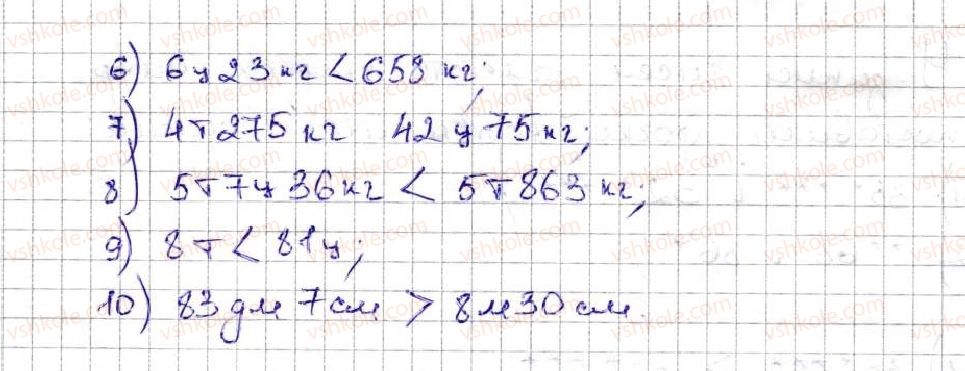 6) 6ц23кг < 658 кг;
7) 4т275кг 42ц75кг;
8) 5т7ц36кг < 5т863кг;
9) 8т < 81ц;
10) 83дм7см > 8м30см.